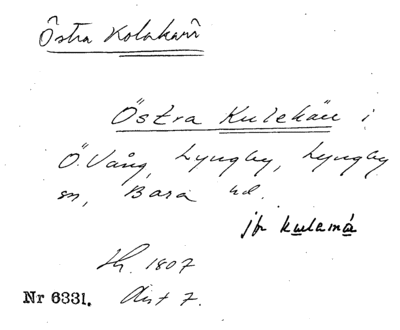 Östra Kolakärr
Östra Kulekärr i
Ö. Vång, Lyngby, Lyngby
sn, Bara hd.
jfr kulamå
Sk. 1807
Akt 7.
Nr 6331.